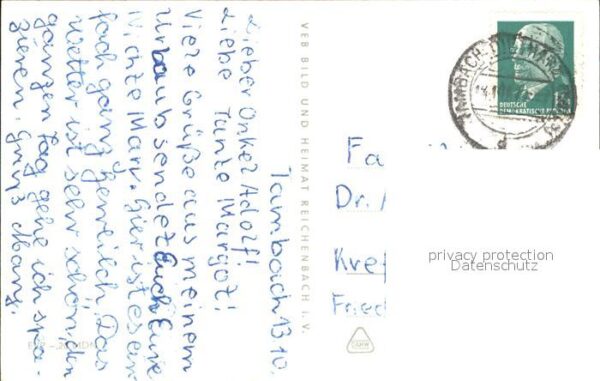 Tambach 13.10.
Lieber Onkel Adolf!
Liebe Tante Margot!
Viele Grüße aus meinem
Urlaub sendet Euch Eure
Nichte Mar. Hier ist es ein
fach ganz herrlich. Das
Wetter ist seer schön, den
ganzen Tag gehe ich spa-
zieren. Gruß
VEB BILD UND HEIMAT REICHENBACH I. V.
TAMBACH-DIETHARZ
DEUTSCHE
DEMOKRATISCHE
Fa
Dr.
Kref
Fried
privacy protection
Datenschutz